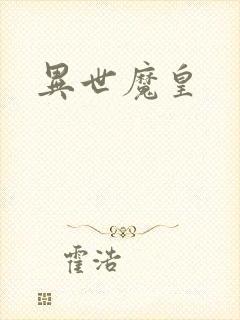 異世魔皇
霍浩